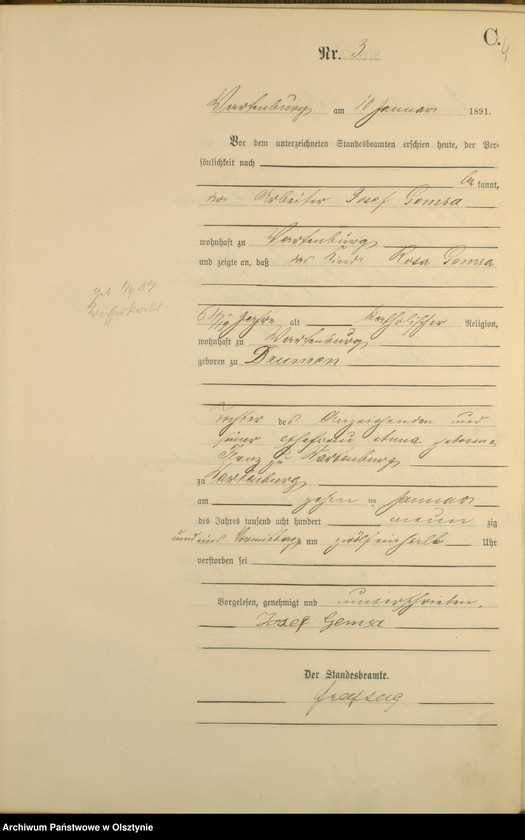 C.
4
Nr. 3.
Wartenburg am 10 Januar 1891.
Vor dem unterzeichneten Standesbeamten erschien heute, der Per-
sönlichkeit nach
bekannt,
der Arbeiter Josef Gemsa
wohnhaft zu Wartenburg
und zeigte an, daß das Kind Rosa Gemsa
6 Jahre alt katholischer Religion,
wohnhaft zu Wartenburg
geboren zu Daumen
Tochter des Anzeigenden und
seiner Ehefrau Anna geborene
zu Wartenburg
zu Wartenburg
am zehn ten Januar
des Jahres tausend acht hundert neun zig
und eins Vormittags um zwölfeinhalb Uhr
verstorben sei
Vorgelesen, genehmigt und unterschrieben.
Josef Gemsa
Der Standesbeamte.
Archiwum Państwowe w Olsztynie